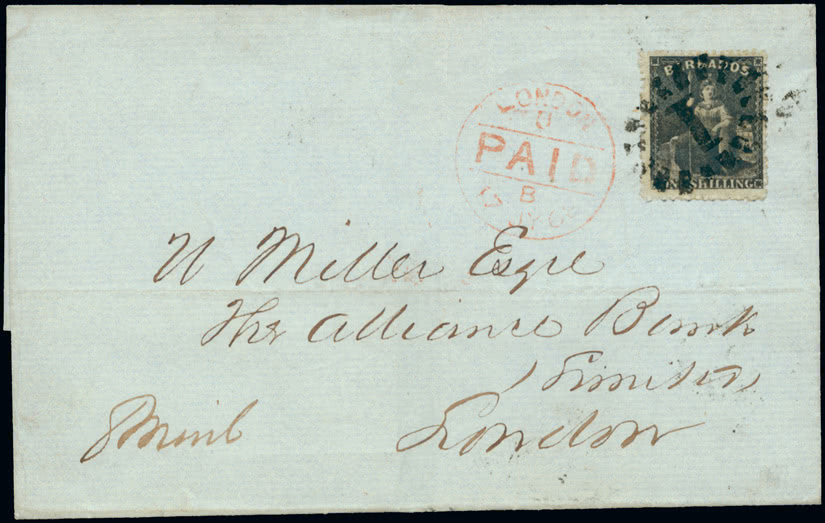 BARBADOS
ONE SHILLING
1
LONDON
PAID
B
JY 6
W Miller Esqre
The Alliance Bank
Limited
London